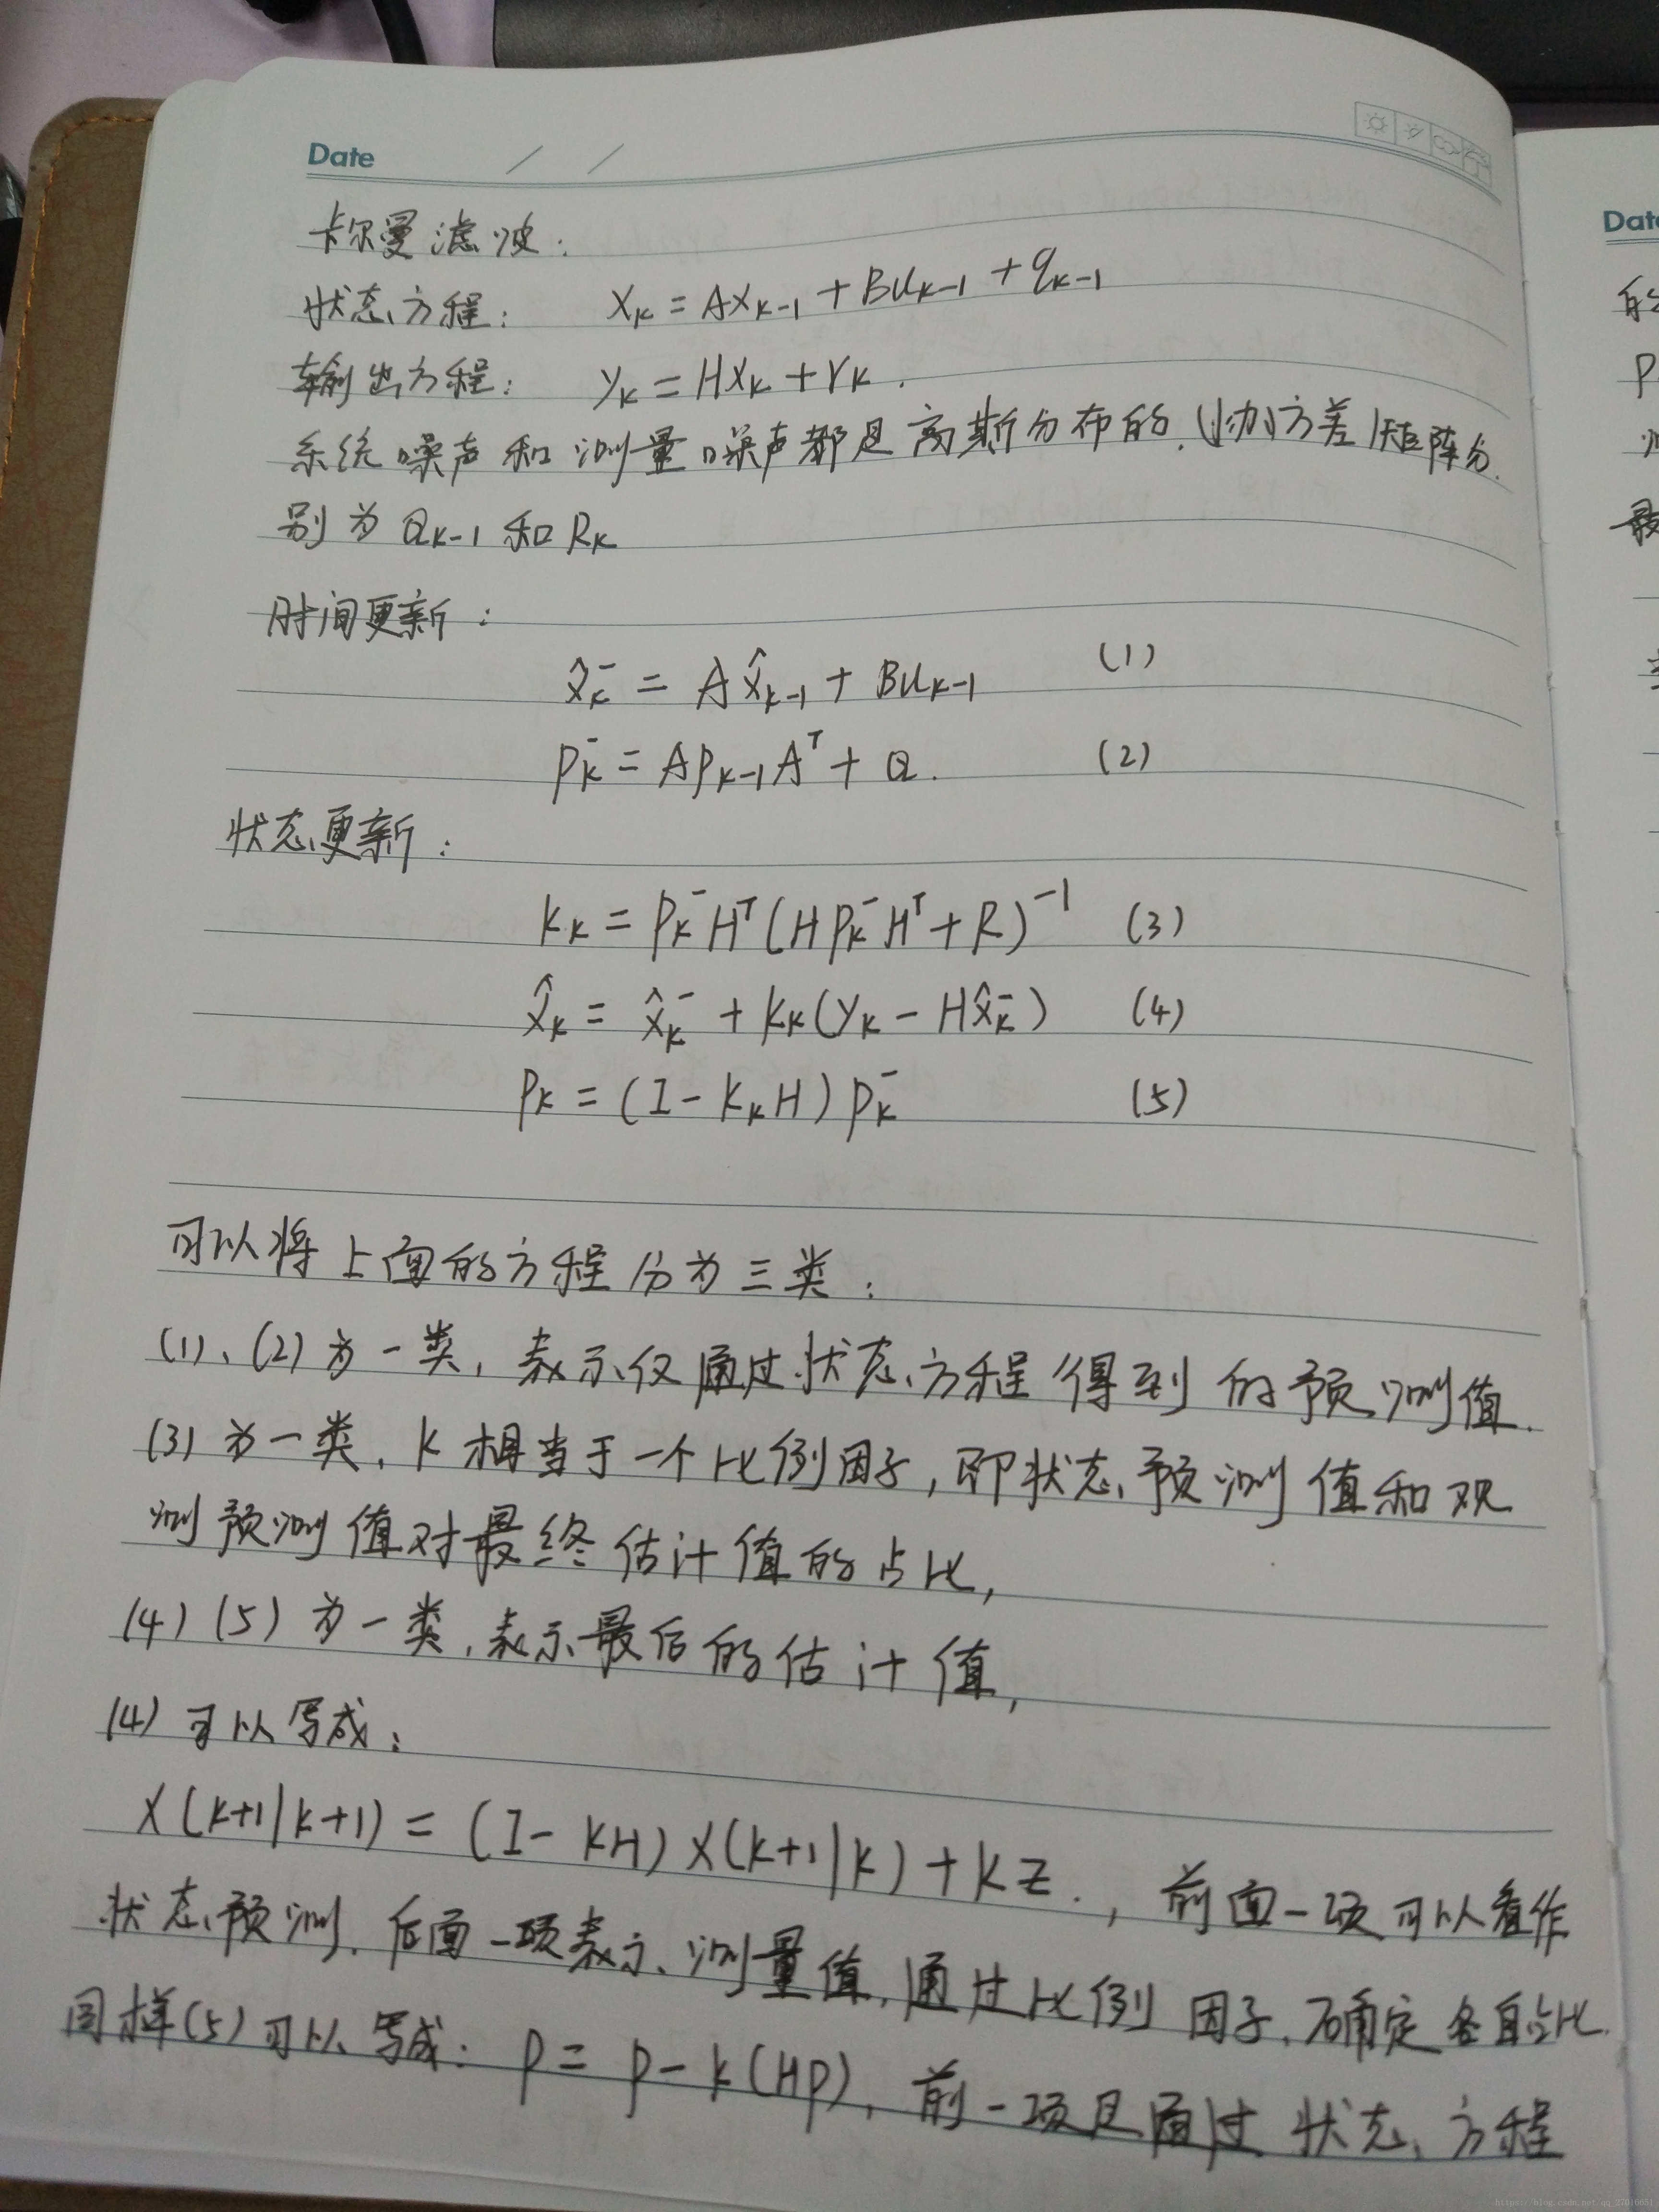 Date / /
卡尔曼滤波：
状态方程： Xₖ = AXₖ₋₁ + Buₖ₋₁ + qₖ₋₁
输出方程： yₖ = HXₖ + rₖ.
系统噪声和测量噪声都是高斯分布的，协方差矩阵分
别为Qₖ₋₁和Rₖ
时间更新：
x̂ₖ⁻ = Ax̂ₖ₋₁ + Buₖ₋₁ (1)
Pₖ⁻ = APₖ₋₁Aᵀ + Q. (2)
状态更新：
Kₖ = Pₖ⁻Hᵀ(HPₖ⁻Hᵀ + R)⁻¹ (3)
x̂ₖ = x̂ₖ⁻ + Kₖ(yₖ - Hx̂ₖ⁻) (4)
Pₖ = (I - KₖH)Pₖ⁻ (5)
可以将上面的方程分为三类：
(1)、(2)为一类，表示仅通过状态方程得到的预测值.
(3)为一类，K相当于一个比例因子，即状态预测值和观
测预测值对最终估计值的占比，
(4)(5)为一类，表示最后的估计值，
(4)可以写成：
X(k+1|k+1) = (I - KH)X(k+1|k) + KZ.，前面一项可以看作
状态预测，后面一项表示测量值，通过比例因子，确定各自占比.
同样(5)可以写成：P = P - K(HP)，前一项是通过状态方程
Date
的
P
测
最
https://blog.csdn.net/qq_27016651